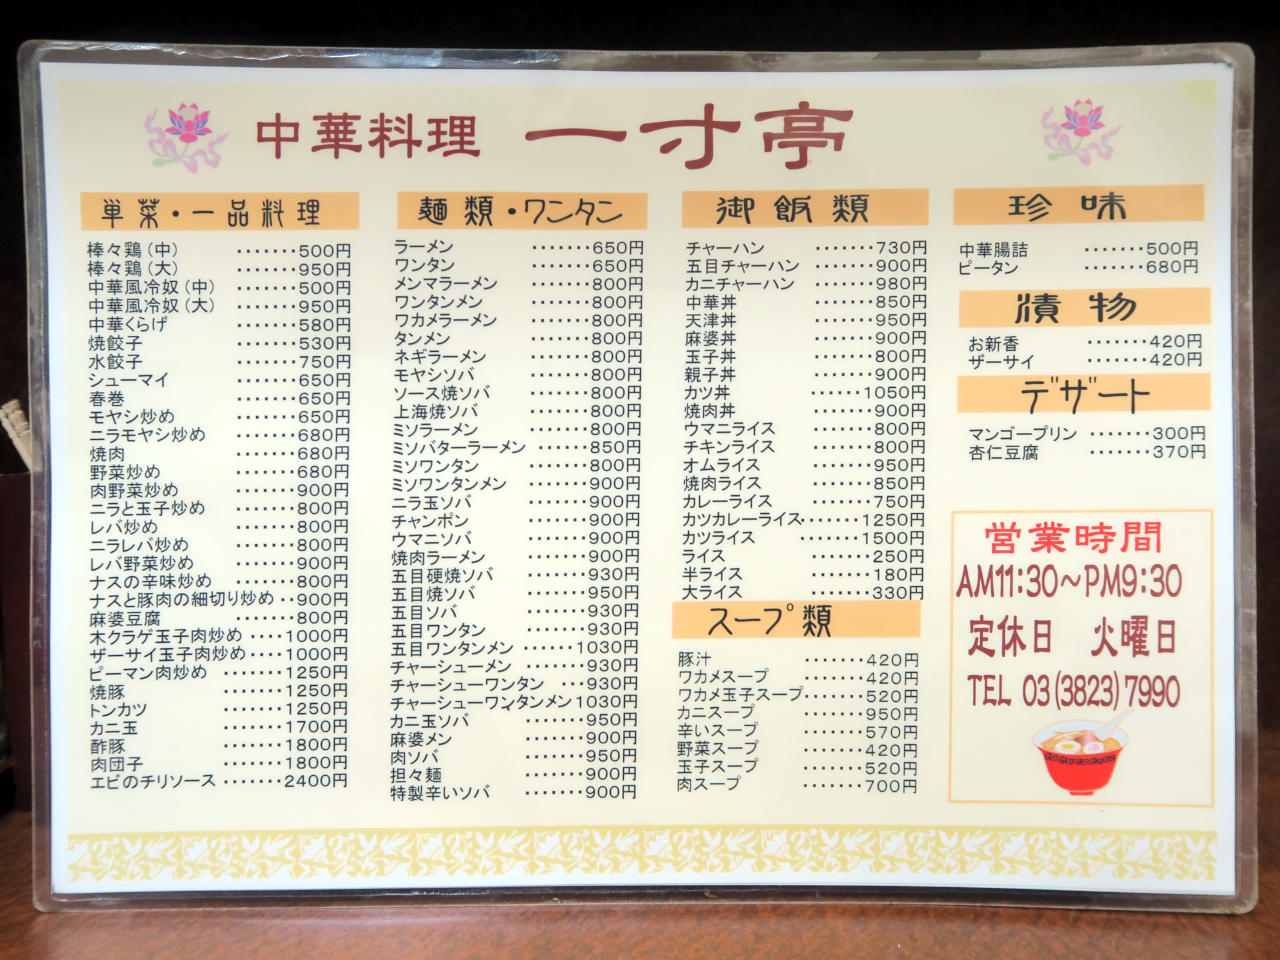 中華料理 一寸亭
単菜・一品料理
棒々鶏（中） ･･･････500円
棒々鶏（大） ･･･････950円
中華風冷奴（中） ･･･････500円
中華風冷奴（大） ･･･････950円
中華くらげ ･･･････580円
焼餃子 ･･･････530円
水餃子 ･･･････750円
シューマイ ･･･････650円
春巻 ･･･････650円
モヤシ炒め ･･･････650円
ニラモヤシ炒め ･･･････680円
焼肉 ･･･････680円
野菜炒め ･･･････680円
肉野菜炒め ･･･････900円
ニラと玉子炒め ･･･････800円
レバ炒め ･･･････800円
ニラレバ炒め ･･･････800円
レバ野菜炒め ･･･････900円
ナスの辛味炒め ･･･････800円
ナスと豚肉の細切り炒め ･･900円
麻婆豆腐 ･･･････800円
木クラゲ玉子肉炒め ････1000円
ザーサイ玉子肉炒め ････1000円
ピーマン肉炒め ･･･････1250円
焼豚 ･･･････1250円
トンカツ ･･･････1250円
カニ玉 ･･･････1700円
酢豚 ･･･････1800円
肉団子 ･･･････1800円
エビのチリソース ･･･････2400円
麺類・ワンタン
ラーメン ･･･････650円
ワンタン ･･･････650円
メンマラーメン ･･･････800円
ワンタンメン ･･･････800円
ワカメラーメン ･･･････800円
タンメン ･･･････800円
ネギラーメン ･･･････800円
モヤシソバ ･･･････800円
ソース焼ソバ ･･･････800円
上海焼ソバ ･･･････800円
ミソラーメン ･･･････800円
ミソバターラーメン ･･････850円
ミソワンタン ･･･････800円
ミソワンタンメン ･･･････900円
ニラ玉ソバ ･･･････900円
チャンポン ･･･････900円
ウマニソバ ･･･････900円
焼肉ラーメン ･･･････900円
五目硬焼ソバ ･･･････930円
五目焼ソバ ･･･････950円
五目ソバ ･･･････930円
五目ワンタン ･･･････930円
五目ワンタンメン ･･････1030円
チャーシューメン ･･･････930円
チャーシューワンタン ･･･930円
チャーシューワンタンメン 1030円
カニ玉ソバ ･･･････950円
麻婆メン ･･･････900円
肉ソバ ･･･････950円
担々麺 ･･･････900円
特製辛いソバ ･･･････900円
御飯類
チャーハン ･･･････730円
五目チャーハン ･･･････900円
カニチャーハン ･･･････980円
中華丼 ･･･････850円
天津丼 ･･･････950円
麻婆丼 ･･･････900円
玉子丼 ･･･････800円
親子丼 ･･･････900円
カツ丼 ･･･････1050円
焼肉丼 ･･･････900円
ウマニライス ･･･････800円
チキンライス ･･･････800円
オムライス ･･･････950円
焼肉ライス ･･･････850円
カレーライス ･･･････750円
カツカレーライス･･･････1250円
カツライス ･･･････1500円
ライス ･･･････250円
半ライス ･･･････180円
大ライス ･･･････330円
スープ類
豚汁 ･･･････420円
ワカメスープ ･･･････420円
ワカメ玉子スープ･･･････520円
カニスープ ･･･････950円
辛いスープ ･･･････570円
野菜スープ ･･･････420円
玉子スープ ･･･････520円
肉スープ ･･･････700円
珍味
中華腸詰 ･･･････500円
ピータン ･･･････680円
漬物
お新香 ･･･････420円
ザーサイ ･･･････420円
デザート
マンゴープリン ･･･････300円
杏仁豆腐 ･･･････370円
営業時間
AM11:30～PM9:30
定休日 火曜日
TEL 03(3823)7990